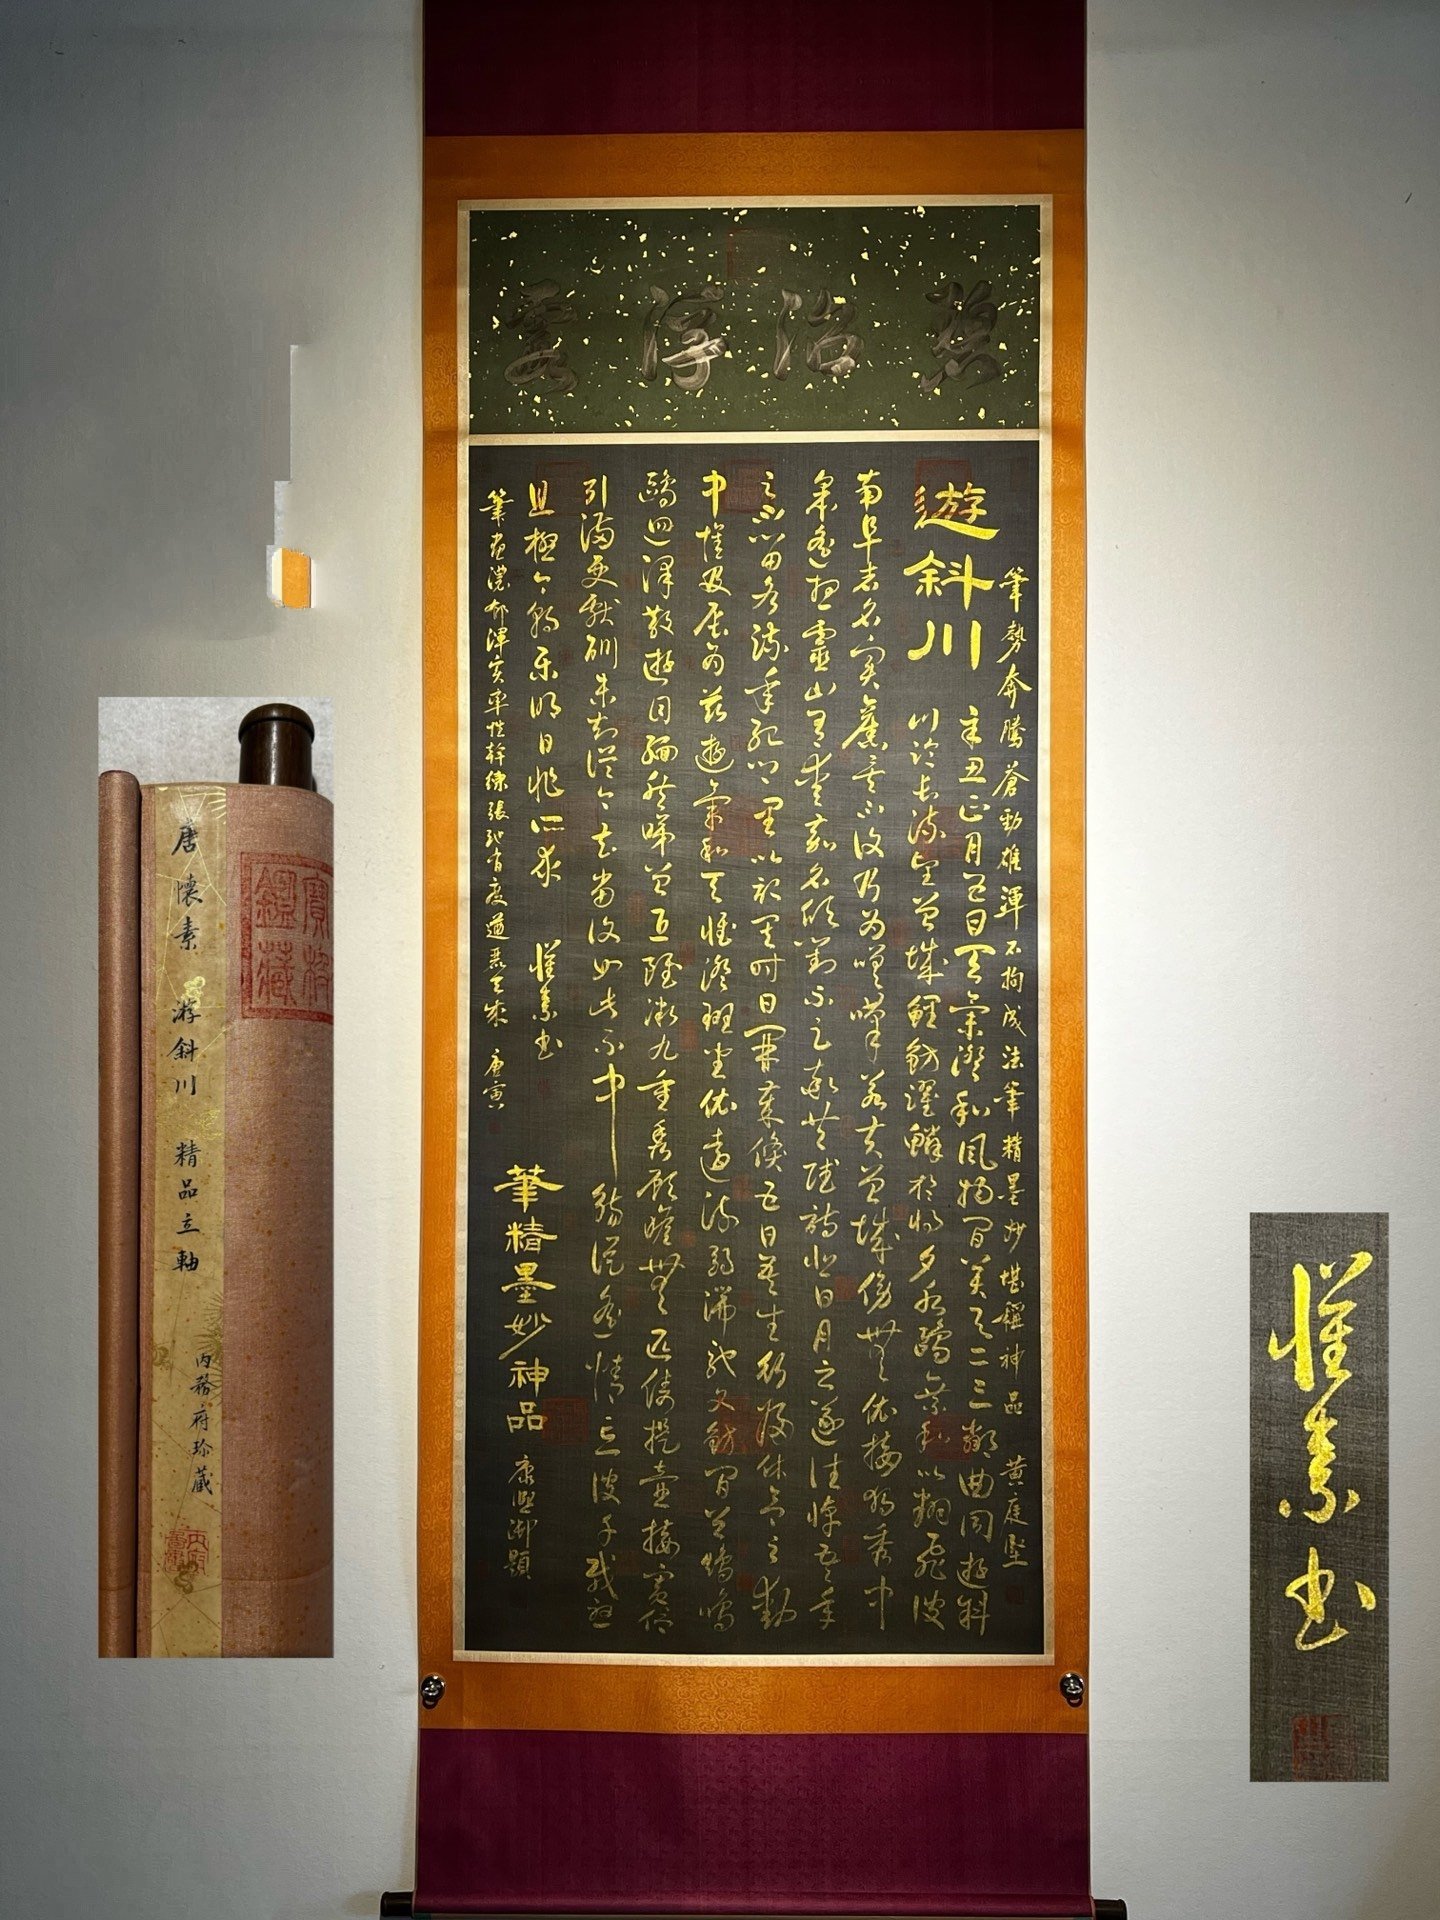 浮雲
筆勢奔騰蒼勁雄渾不拘成法筆精墨妙堪稱神品 黃庭堅
遊斜川
辛丑正月五日天氣澄和風物閒美与二三鄰曲同遊斜
川臨長流望曾城鯉魴躍鱗於將夕水鷗乘和以翻飛彼
南阜者名實舊矣不復乃為嗟嘆若夫曾城傍無依接獨秀中
皋遙想靈山有愛嘉名欣對不足率共賦詩悲日月之遂往悼吾年
之不留各疏年紀鄉里以記其時日開歲倏五日吾生行歸休念之動
中懷及辰為茲遊氣和天惟澄班坐依遠流弱湍馳文魴閒谷矯鳴
鷗迥澤散遊目緬然睇曾丘雖微九重秀顧瞻無匹儔提壺接賓侶
引滿更獻酬未知從今去當復如此不中觴縱遙情忘彼千載憂
且極今朝樂明日非所求 懷素書
筆畫濃郁渾實率性幹練張弛有度遒天成 唐寅
筆精墨妙神品 康熙御題
唐懷素 游斜川 精品立軸
內務府珍藏
懷素書